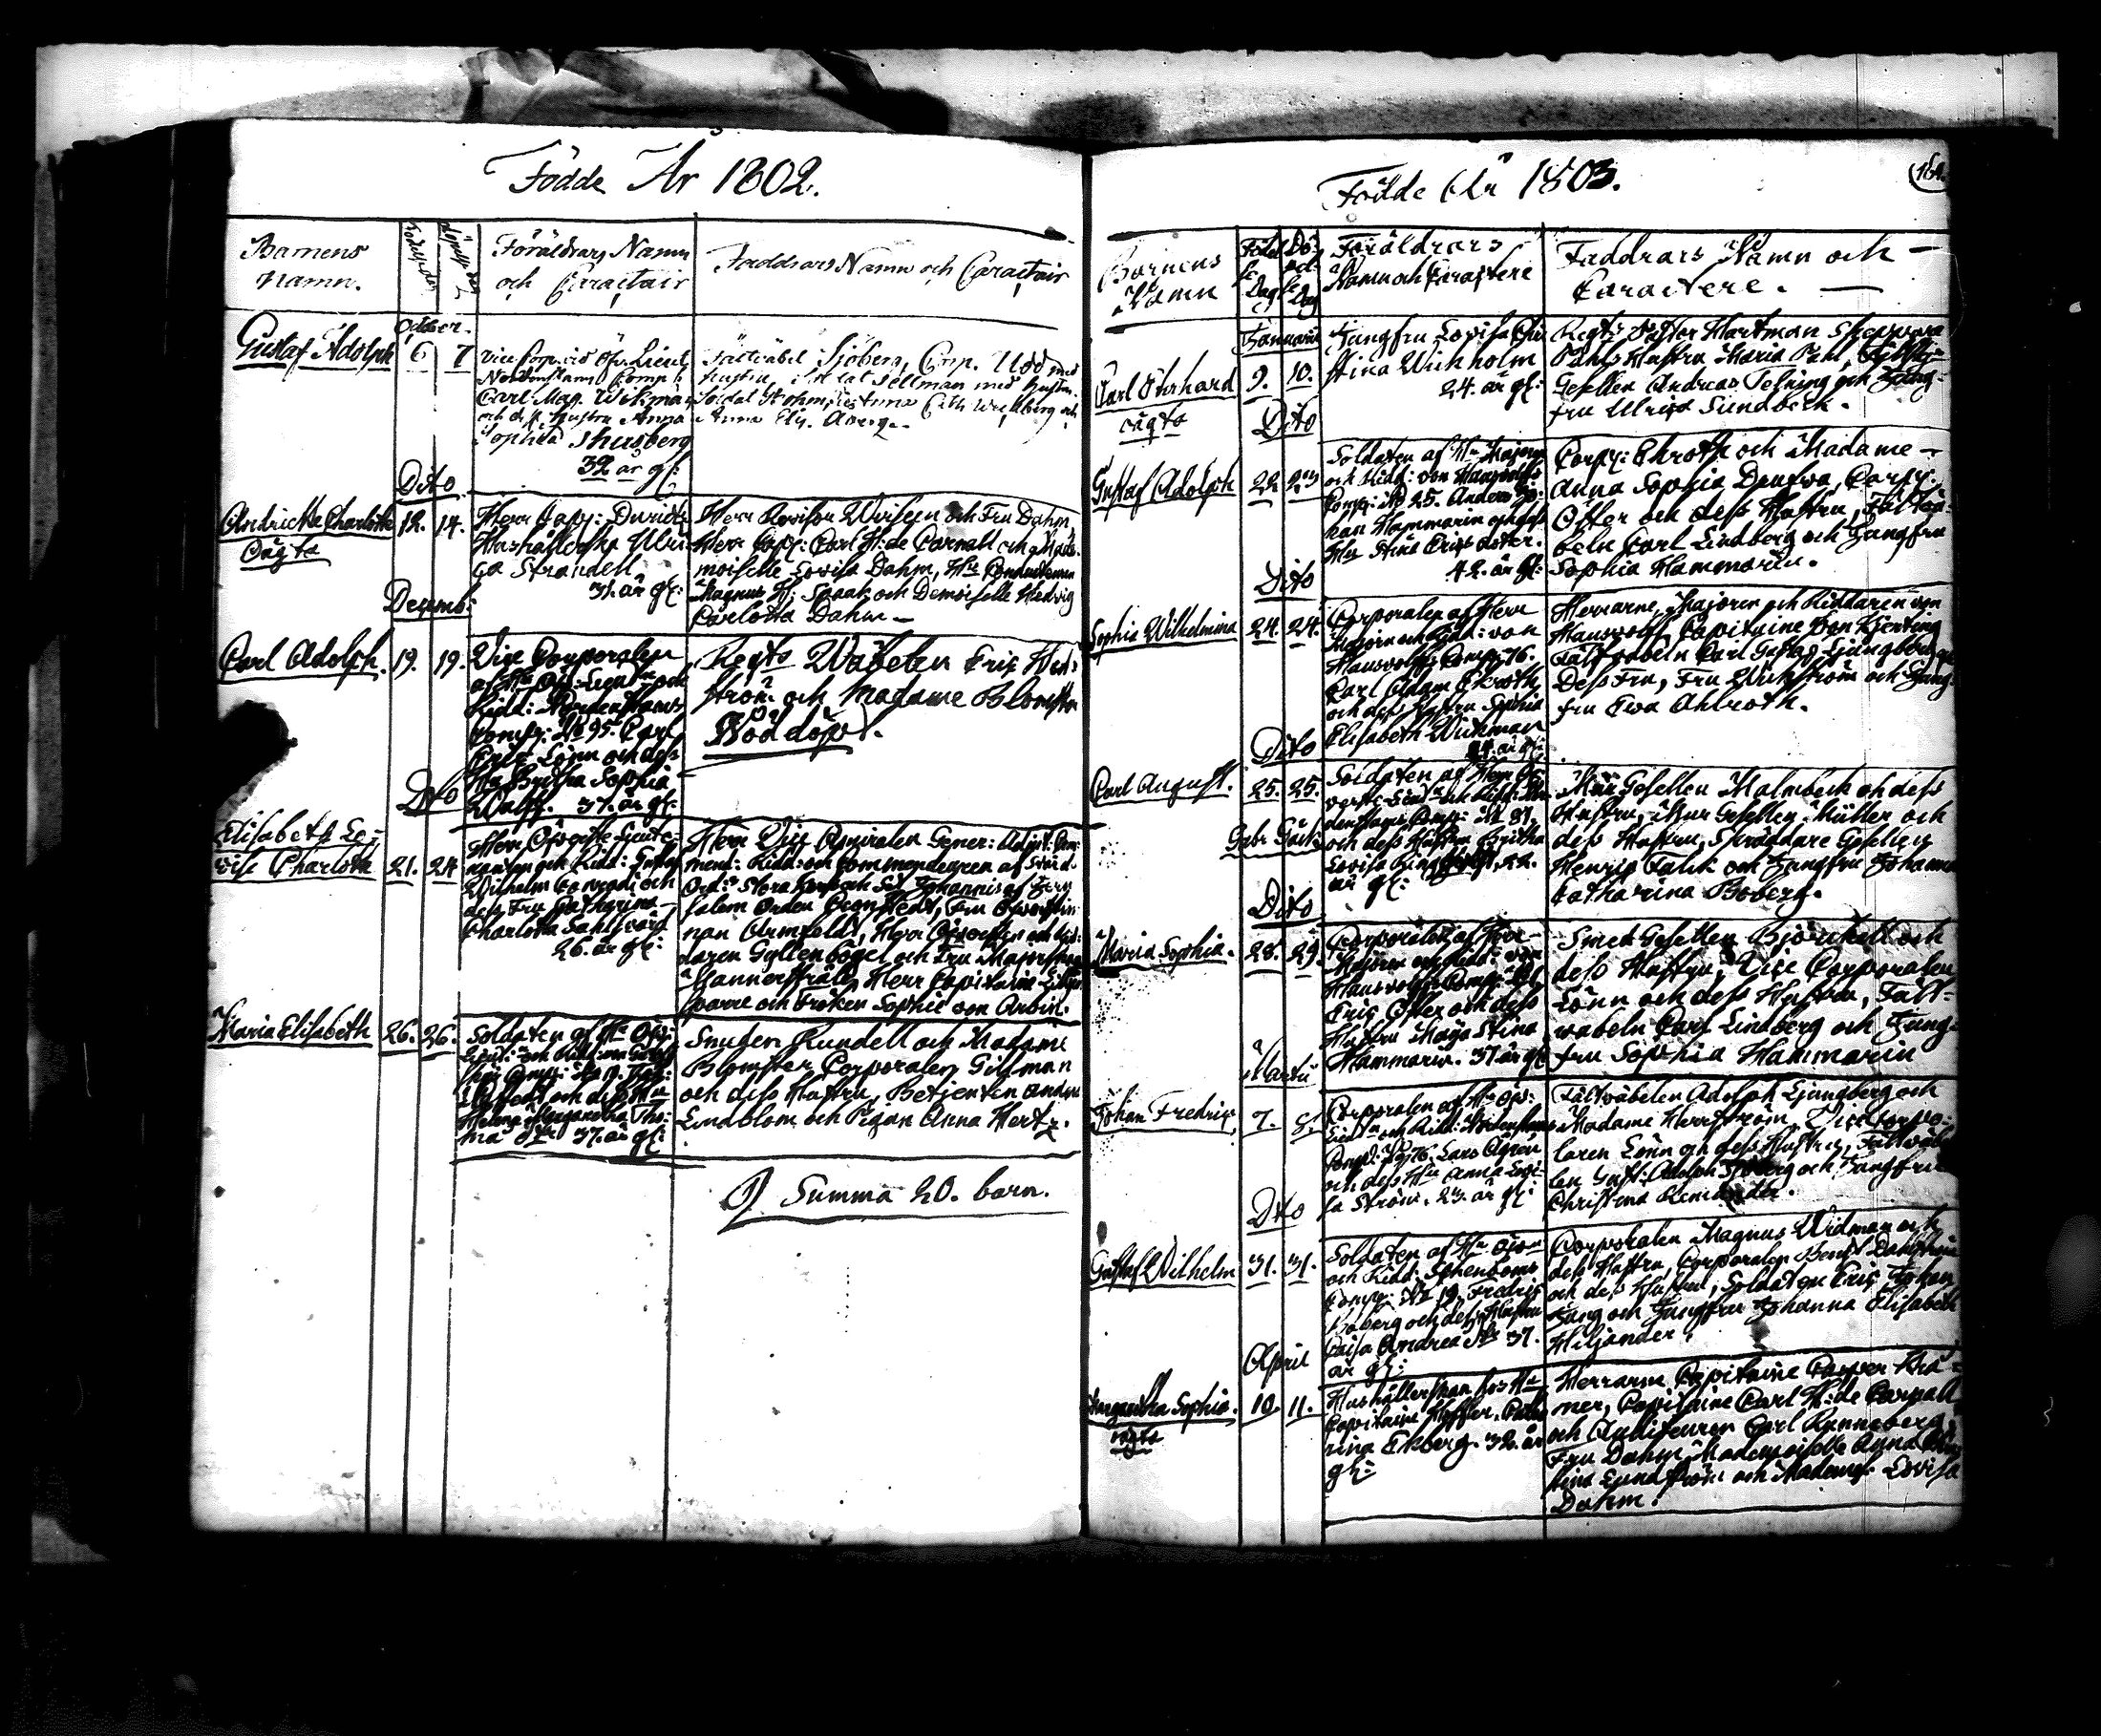 Födde År 1802.
Barnens
Namn.
Födelse dag
Döpelse dag
Föräldrars Namn
och Caractair
Faddrars Namn och Caractair
October.
Gustaf Adolph 6 7
Vice Corp. vid Öfv. Lieut.
Nordenstams Comp.
Carl Mag. Wikman
och dess hustru Anna
Sophia
32 år gl:
Fältväbel Sjöberg, Corp. Udd med
hustru, Soldat Sellman med hustru
Soldat Strohm,
Anna Elis. Åberg.
Dito
Andrietta Charlotta 12. 14.
Oägta
Herr Cap: Davids
Hushållerska Ulri-
ca Strandell
31. år gl:
Herr Revisor och Fru Dahm
Herr Cap: Carl H: de Carnall och Made-
moiselle Lovisa Dahm, Hr Conducteuren
Magnus H: Spaak och Demoiselle Hedvig
Carlotta Dahm
Decemb:
Carl Adolph. 19. 19.
Vice Corporalen
af Hr Öfv: Lieutn och
Ridd: Nordenstams
Comp: No 95. Carl
Eric Lönn och dess
Hu Britha Sophia
Wulff. 37. år gl:
Regts Wäbelen Eric Hed-
ström och Madame Blomster
Nöddöpt.
Dito
Elisabeth Lo-
vise Charlotta 21. 24
Herr Öfverste Lieute-
nanten och Ridd: Gustaf
Wilhelm Conradi och
dess Fru Catharina
Charlotta Sahlsvärd
26. år gl:
Herr Vice Amiralen Gener: Adjut. Com-
mend: Ridd: och Commendeuren af Svärd-
Ord: Stora Kors och St Johannis af Jeru-
salem Orden Cronstedt, Fru Öfverstin-
nan Armfeldt, Herr Öfversten och Rid-
daren Gyllenbögel och Fru Majorskan
Mannerstråle, Herr Capitaine Lilje-
sparre och Fröken Sophie von Arbin.
Maria Elisabeth 26. 26.
Soldaten af Hr Öfv:
Helena Margaretha Tho-
mæ Dtr 37. år gl:
Snuten Rundell och Madame
Blomster, Corporalen Gillman
och dess Hustru, Betjenten Anders
Lindblom och Pigan Anna Hertz.
Summa 20. barn.
Födde År 1803.
164.
Barnens
Namn
Födel
se
Dag
Dö-
pel-
se
Dag
Föräldrars
Namn och Caractere
Faddrars Namn och
Caractere.
Januarii
Carl Ehrhard 9. 10.
oägta
Jungfru Lovisa Chri-
stina Wichholm
24. år gl:
Regts Hartman Skeppare
Påhls Hustru Maria Påhl,
Gesellen Andreas Telning och Jung-
fru Ulrica Sundbeck.
Dito
Gustaf Adolph 22 23
Soldaten af Hr Majoren
och Ridd: von Hauswolffs
Comp: No 25. Anders Jo-
han Hammarin och dess
Hu Stina Erics dotter.
42. år gl:
Corp: Ekroth och Madame
Anna Sophia Corp:
Öster och dess Hustru, Fältvä-
beln Carl Lindberg och Jungfru
Sophia Hammarin.
Dito
Sophia Wilhelmina 24. 24.
Corporalen af Herr
Majorn och Ridd: von
Hauswolffs Comp: 76.
Carl Adam Ekroth
och dess Hustru Sophia
Elisabeth Wickman
24. år gl:
Herrarne, Majoren och Riddaren von
Hauswolff, Capitaine von Kjerting
Fältväbeln Carl Gustaf Ljungberg och
Dess Fru, Fru Wickström och Jung-
fru Ewa Ahlroth.
Dito
Carl August. 25. 25.
Gabr. Gäck
Soldaten af Herr Öf-
verste Lieutn och Ridd: Nor-
denstams Comp: No 81.
och dess Hustru Britha
Lovisa 22.
år gl:
Mur Gesellen Malmbeck och dess
Hustru, Mur Gesellen Müller och
dess Hustru, Skräddare Gesellen
Henric Falck och Jungfru Johanna
Catharina Boberg.
Dito
Maria Sophia. 28. 29.
Corporalen af Herr
Majoren och Ridd: von
Hauswolffs Comp:
Eric Öster och dess
Hustru Maja Stina
Hammarin. 37. år gl:
Smed Gesellen Björckell och
dess Hustru, Vice Corporalen
Lönn och dess Hustru, Fält-
wäbeln Carl Lindberg och Jung-
fru Sophia Hammarin
Martii
Johan Fredric 7. 8.
Corporalen af Hr Öfv:
Lieutn och Ridd: Nordenstams
Comp: No 76. Lars Ågren
och dess Hu Anna Lovi-
sa Ström. 23. år gl:
Fältwäbelen Adolph Ljungberg och
Madame Herrström, Vice Corpo-
ralen Lönn och dess Hustru, Fältwäbe-
len Gust: Adolph Sjöberg och Jungfru
Christina
Dito
Gustaf Wilhelm 31. 31.
Soldaten af Hr
och Ridd: Stjernboms
Comp: No 19. Fredric
Boberg och dess Hustru
Caisa Andreæ Dtr 37.
år gl:
Corporalen Magnus Widman och
dess Hustru, Corporalen Bengt Dahlström
och dess Hustru, Soldaten Eric Johan
Jung och Jungfru Johanna Elisabeth
Hiljander.
April
Margaretha Sophia. 10. 11.
oägta
Hushållerskan hos Hr
Capitaine Höffler, Catha-
rina Ekberg. 32. år
gl:
Herrarne Capitaine Casper Krä-
mer, Capitaine Carl H: de Carnall
och Auditeuren Carl Runneberg,
Fru Dahm, Mademoiselle Anna Chri-
stina Lundström och Madems: Lovisa
Dahm.